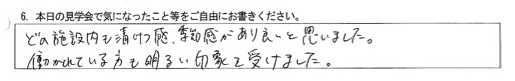 6. 本日の見学会で気になったこと等をご自由にお書きください。
どの施設内も清けつ感、季節感があり良いと思いました。
働かれている方も明るい印象を受けました。